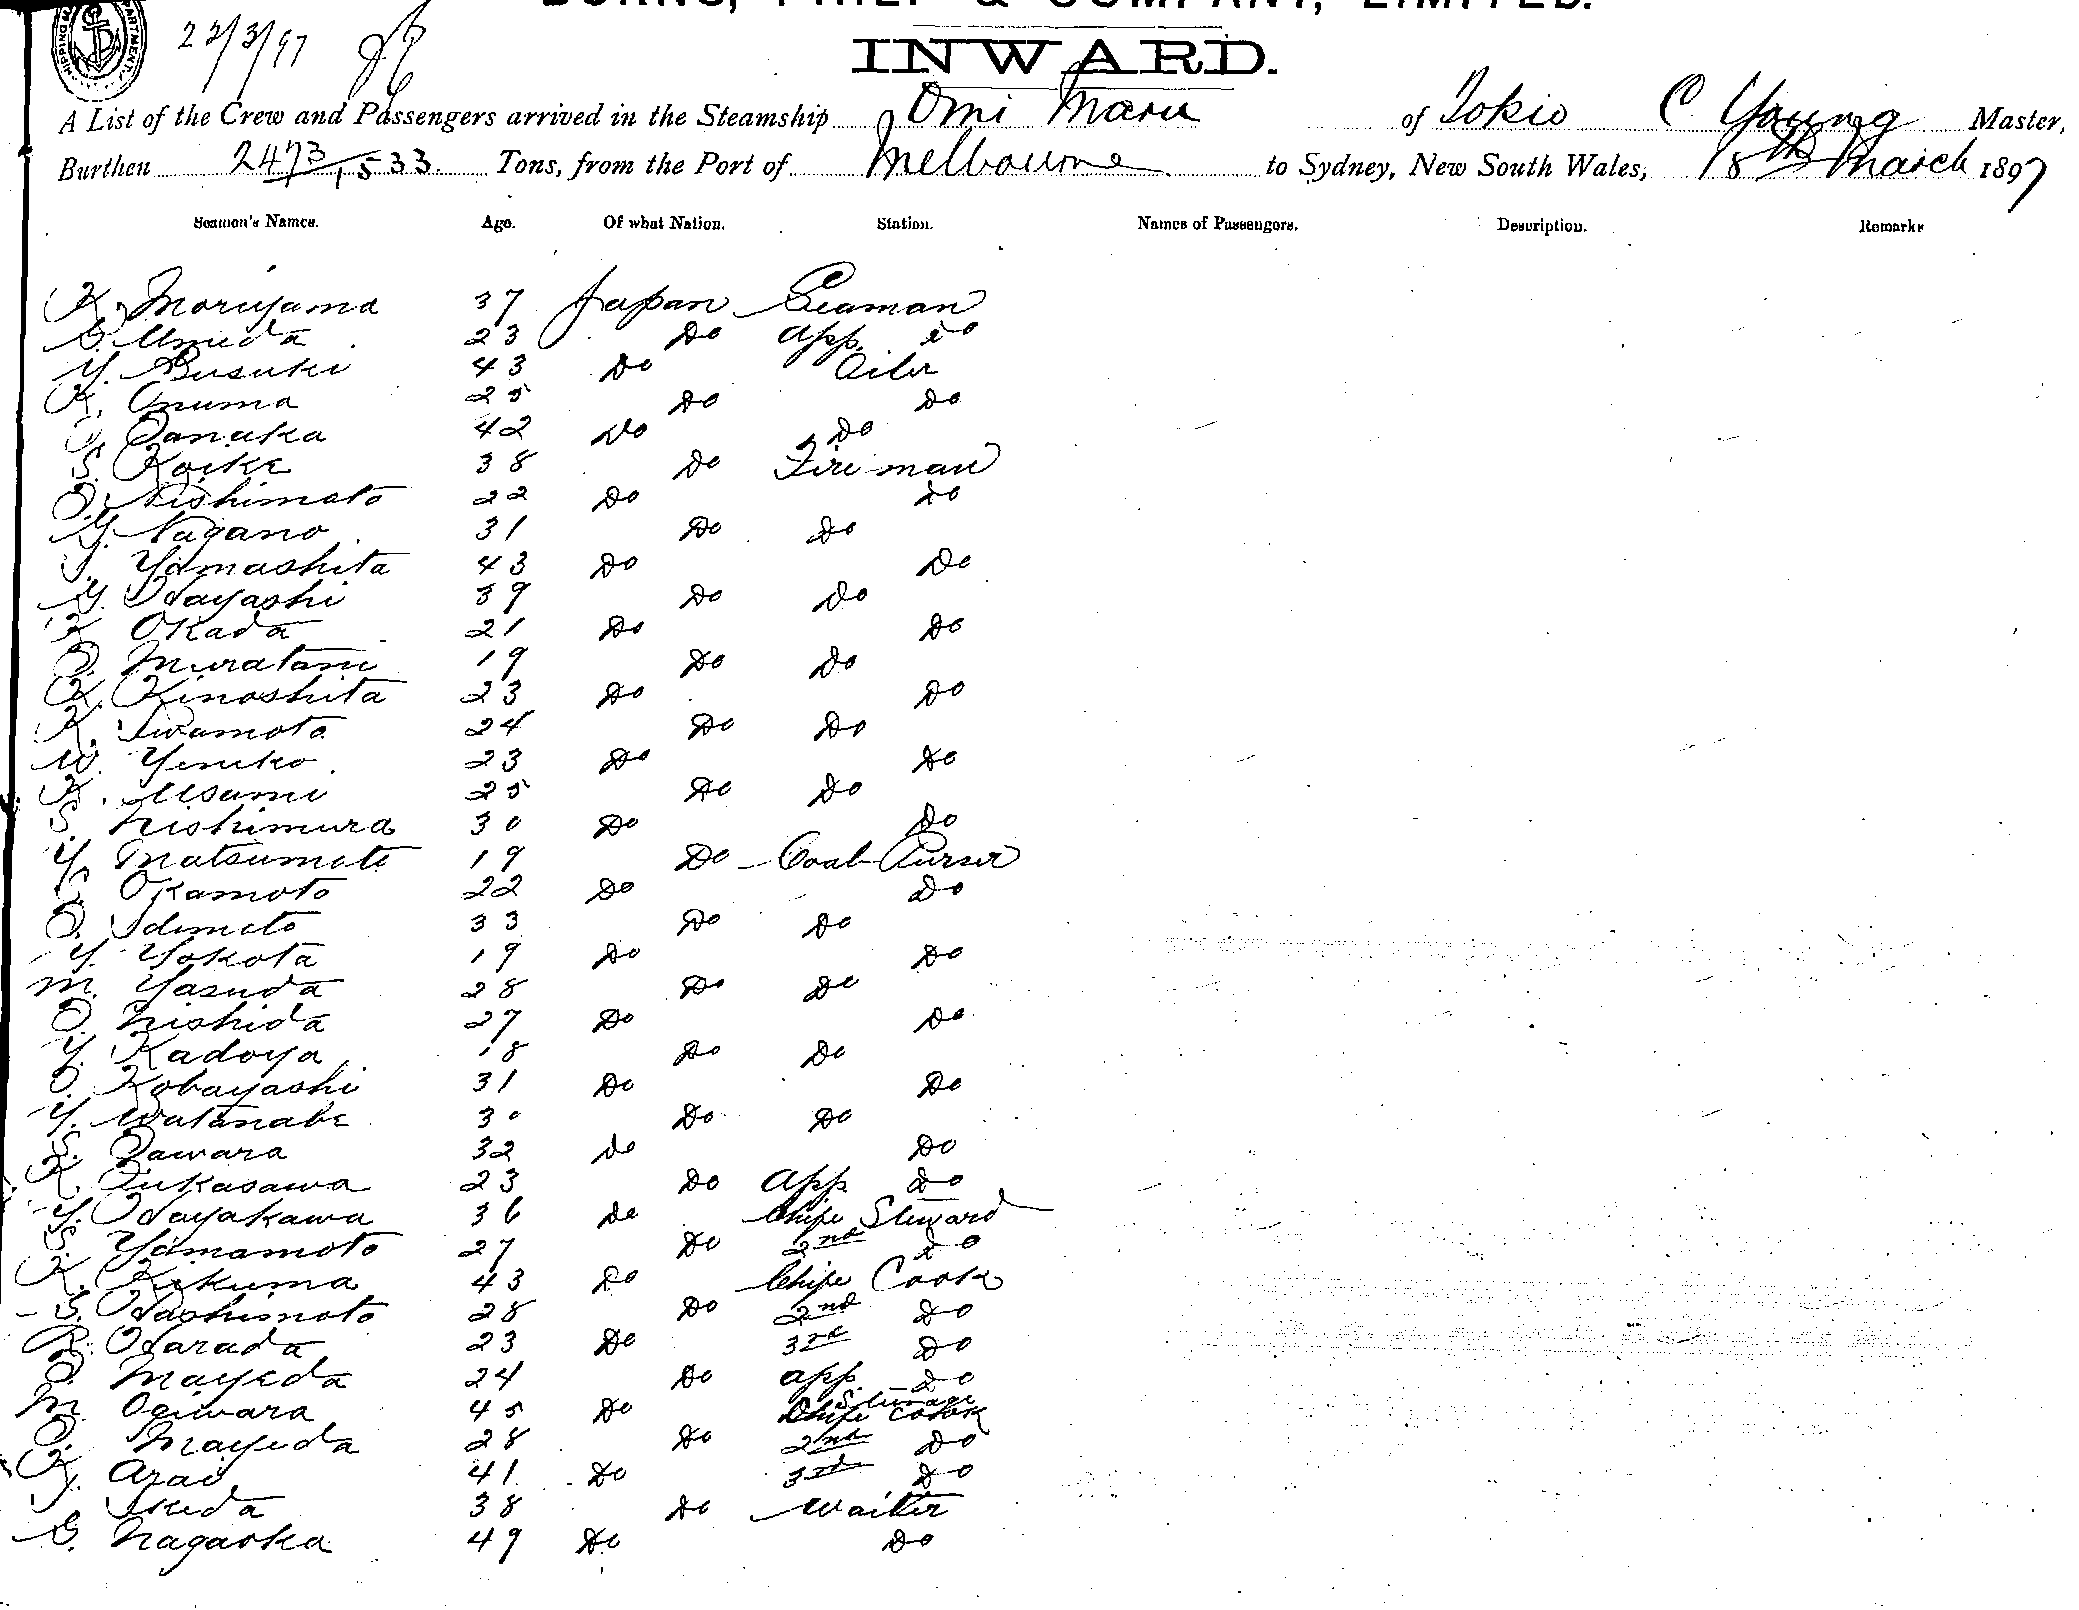 BURNS, PHILP & COMPANY, LIMITED.
22/3/97
INWARD.
A List of the Crew and Passengers arrived in the Steamship Omi Maru of Tokio C Young Master,
Burthen 2473/1533. Tons, from the Port of Melbourne to Sydney, New South Wales, 18th March 1897
Seamen's Names. Age. Of what Nation. Station. Names of Passengers. Description. Remarks
K. Moriyama 37 Japan Seaman
G. Umeda 23 Do app. do
Y. Susuki 43 Do Oiler
K. Onuma 25 Do Do
Tanaka 42 Do Do
S. Koike 38 Do Fireman
Nishimoto 22 Do Do
Y. Nagano 31 Do Do
Yamashita 43 Do Do
Y. Hayashi 39 Do Do
K Okada 21 Do Do
Muratani 19 Do Do
K. Kinoshita 23 Do Do
K. Iwamoto 24 Do Do
W. Yeniko 23 Do Do
K. Usami 25 Do Do
S. Nishimura 30 Do Do
Y. Matsumoto 19 Do Coal Purser
Okamoto 22 Do Do
Idemoto 33 Do Do
Y. Yokota 19 Do Do
M. Yasuda 28 Do Do
Nishida 27 Do Do
Y. Kadoya 18 Do Do
Kobayashi 31 Do Do
Y. Watanabe 30 Do Do
S. Tawara 32 do Do
K. Fukasawa 23 Do app Do
Y. Hayakawa 36 Do Chife Steward
S. Yamamoto 27 Do 2nd Do
K. Kikuma 43 Do Chife Cook
S. Hashimoto 28 Do 2nd Do
R. Harada 23 Do 3rd Do
Mayeda 24 Do app. Do
M. Ogiwara 45 Do Steerage Chife Cook
Mayeda 28 Do 2nd Do
K. Arai 41 Do 3rd Do
Ikeda 38 Do Waiter
G. Nagaoka 49 Do Do